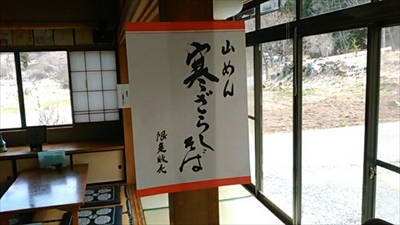 山めん
寒ざらしそば
限定販売